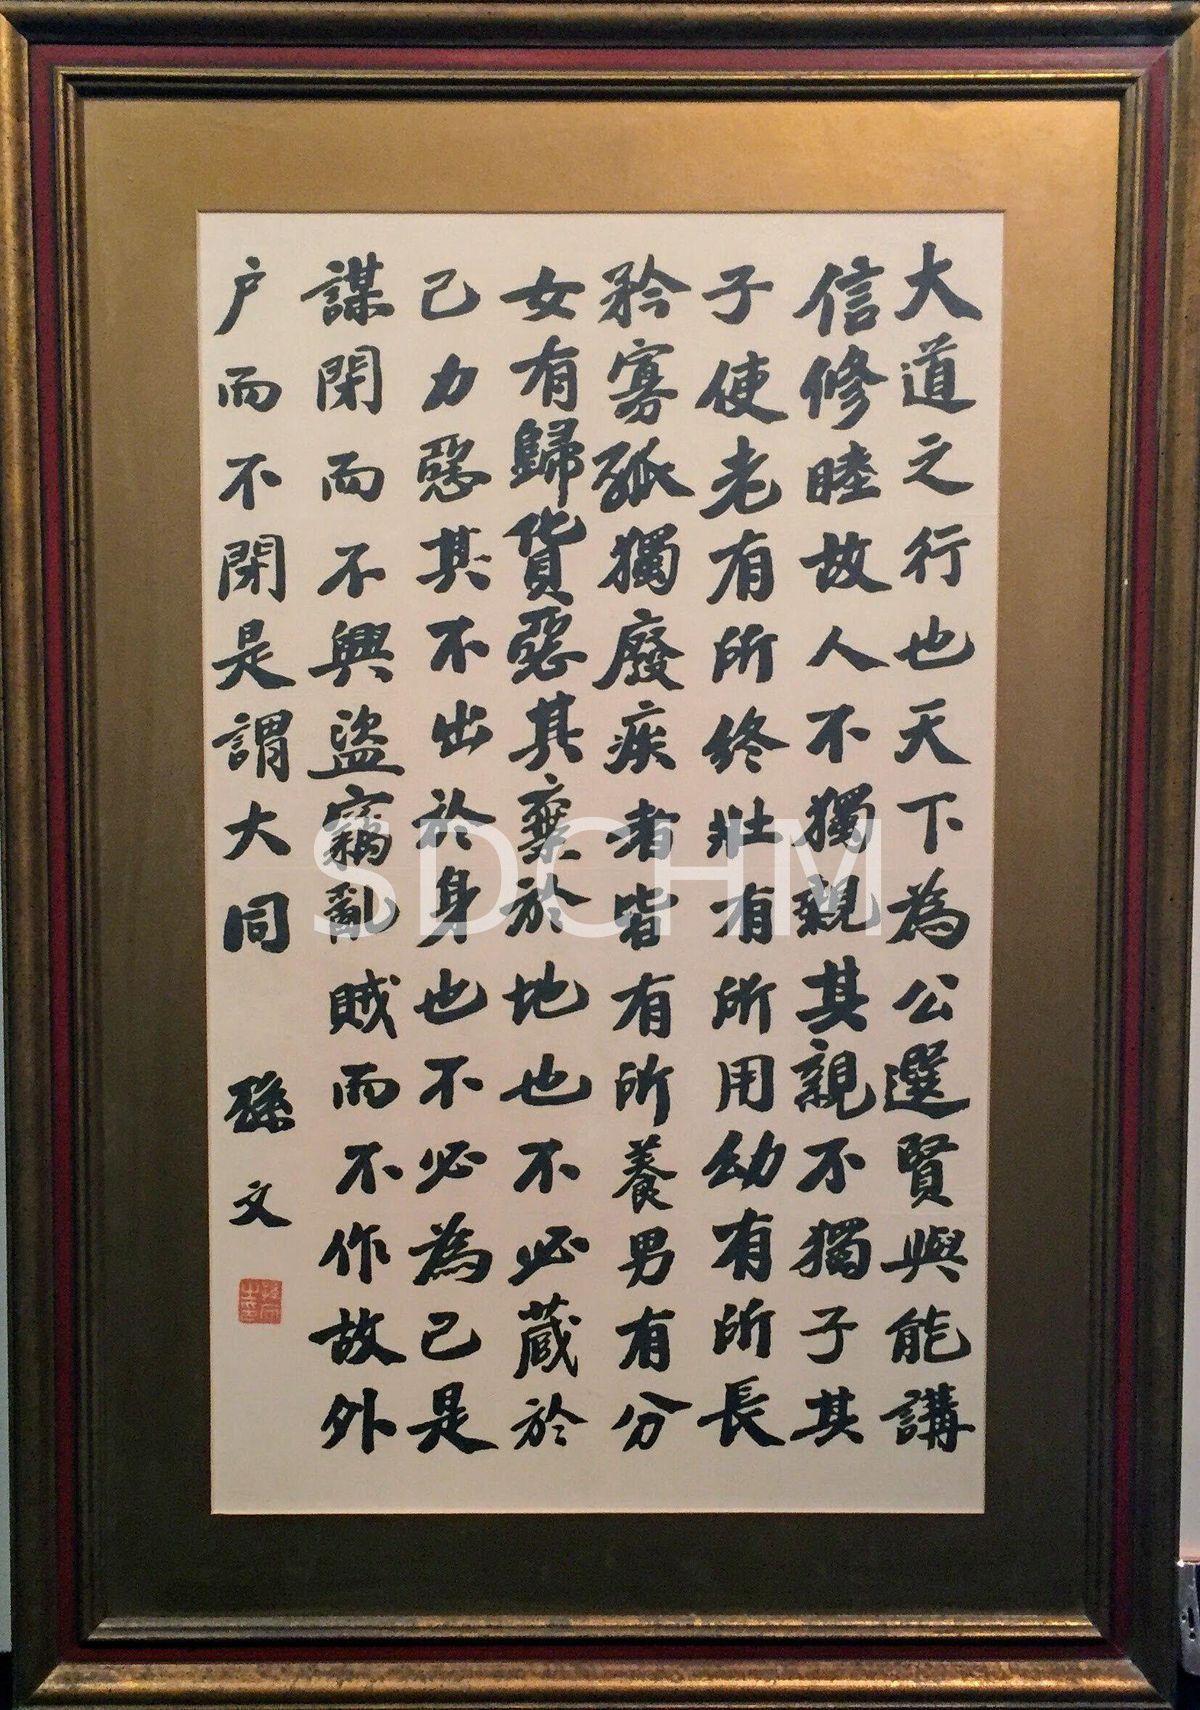 大道之行也天下為公選賢與能講
信修睦故人不獨親其親不獨子其
子使老有所終壯有所用幼有所長
矜寡孤獨廢疾者皆有所養男有分
女有歸貨惡其棄於地也不必藏於
己力惡其不出於身也不必為己是
謀閉而不興盜竊亂賊而不作故外
户而不閉是謂大同
孫文
孫文之印
SDCHM